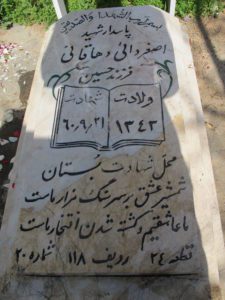 بسم رب الشهداء والصدیقین
پاسدار رشید
اصغر دائی دهاقانی
فرزند حسین
ولادت
۱۳۴۳
شهادت
۶۰،۹،۲۱
محل شهادت بستان
شمشیر عشق بر سر سنگ مزار ماست
ما عاشقیم و کشته شدن افتخار ماست
قطعه ۲۴ ردیف ۱۱۸ شماره ۲۰